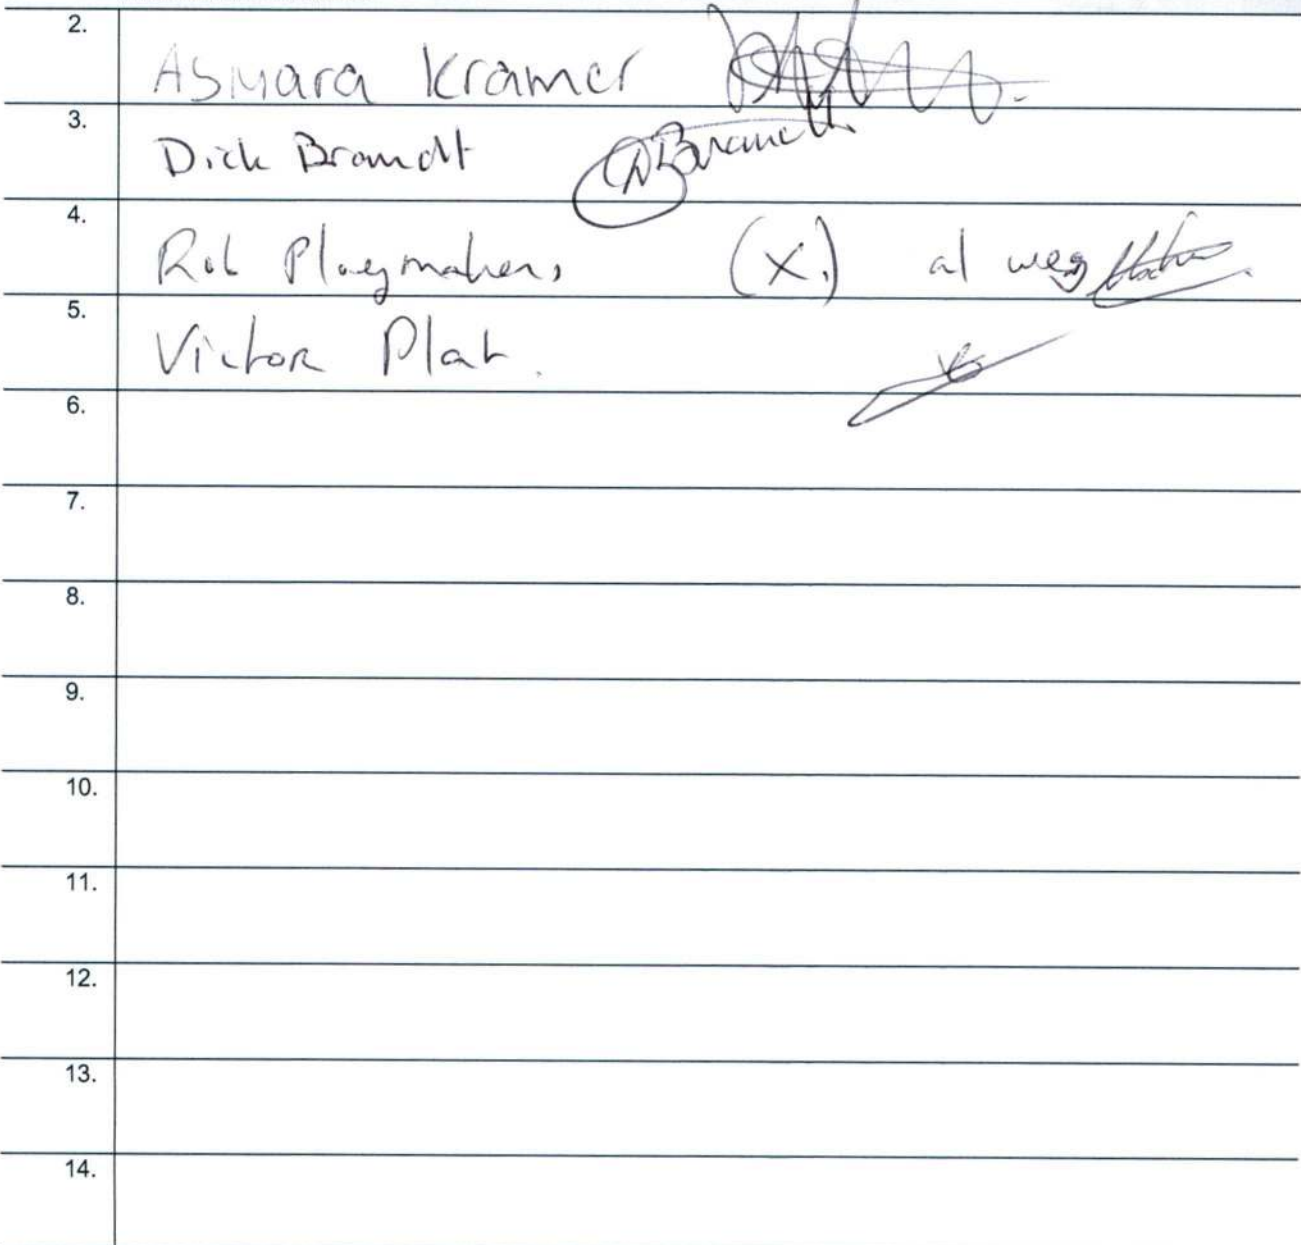 2. Asmara Kramer
3. Dick Brandt DBrandt
4. Rob Plaegmakers (x.) al weg
5. Victor Plat.
6.
7.
8.
9.
10.
11.
12.
13.
14.